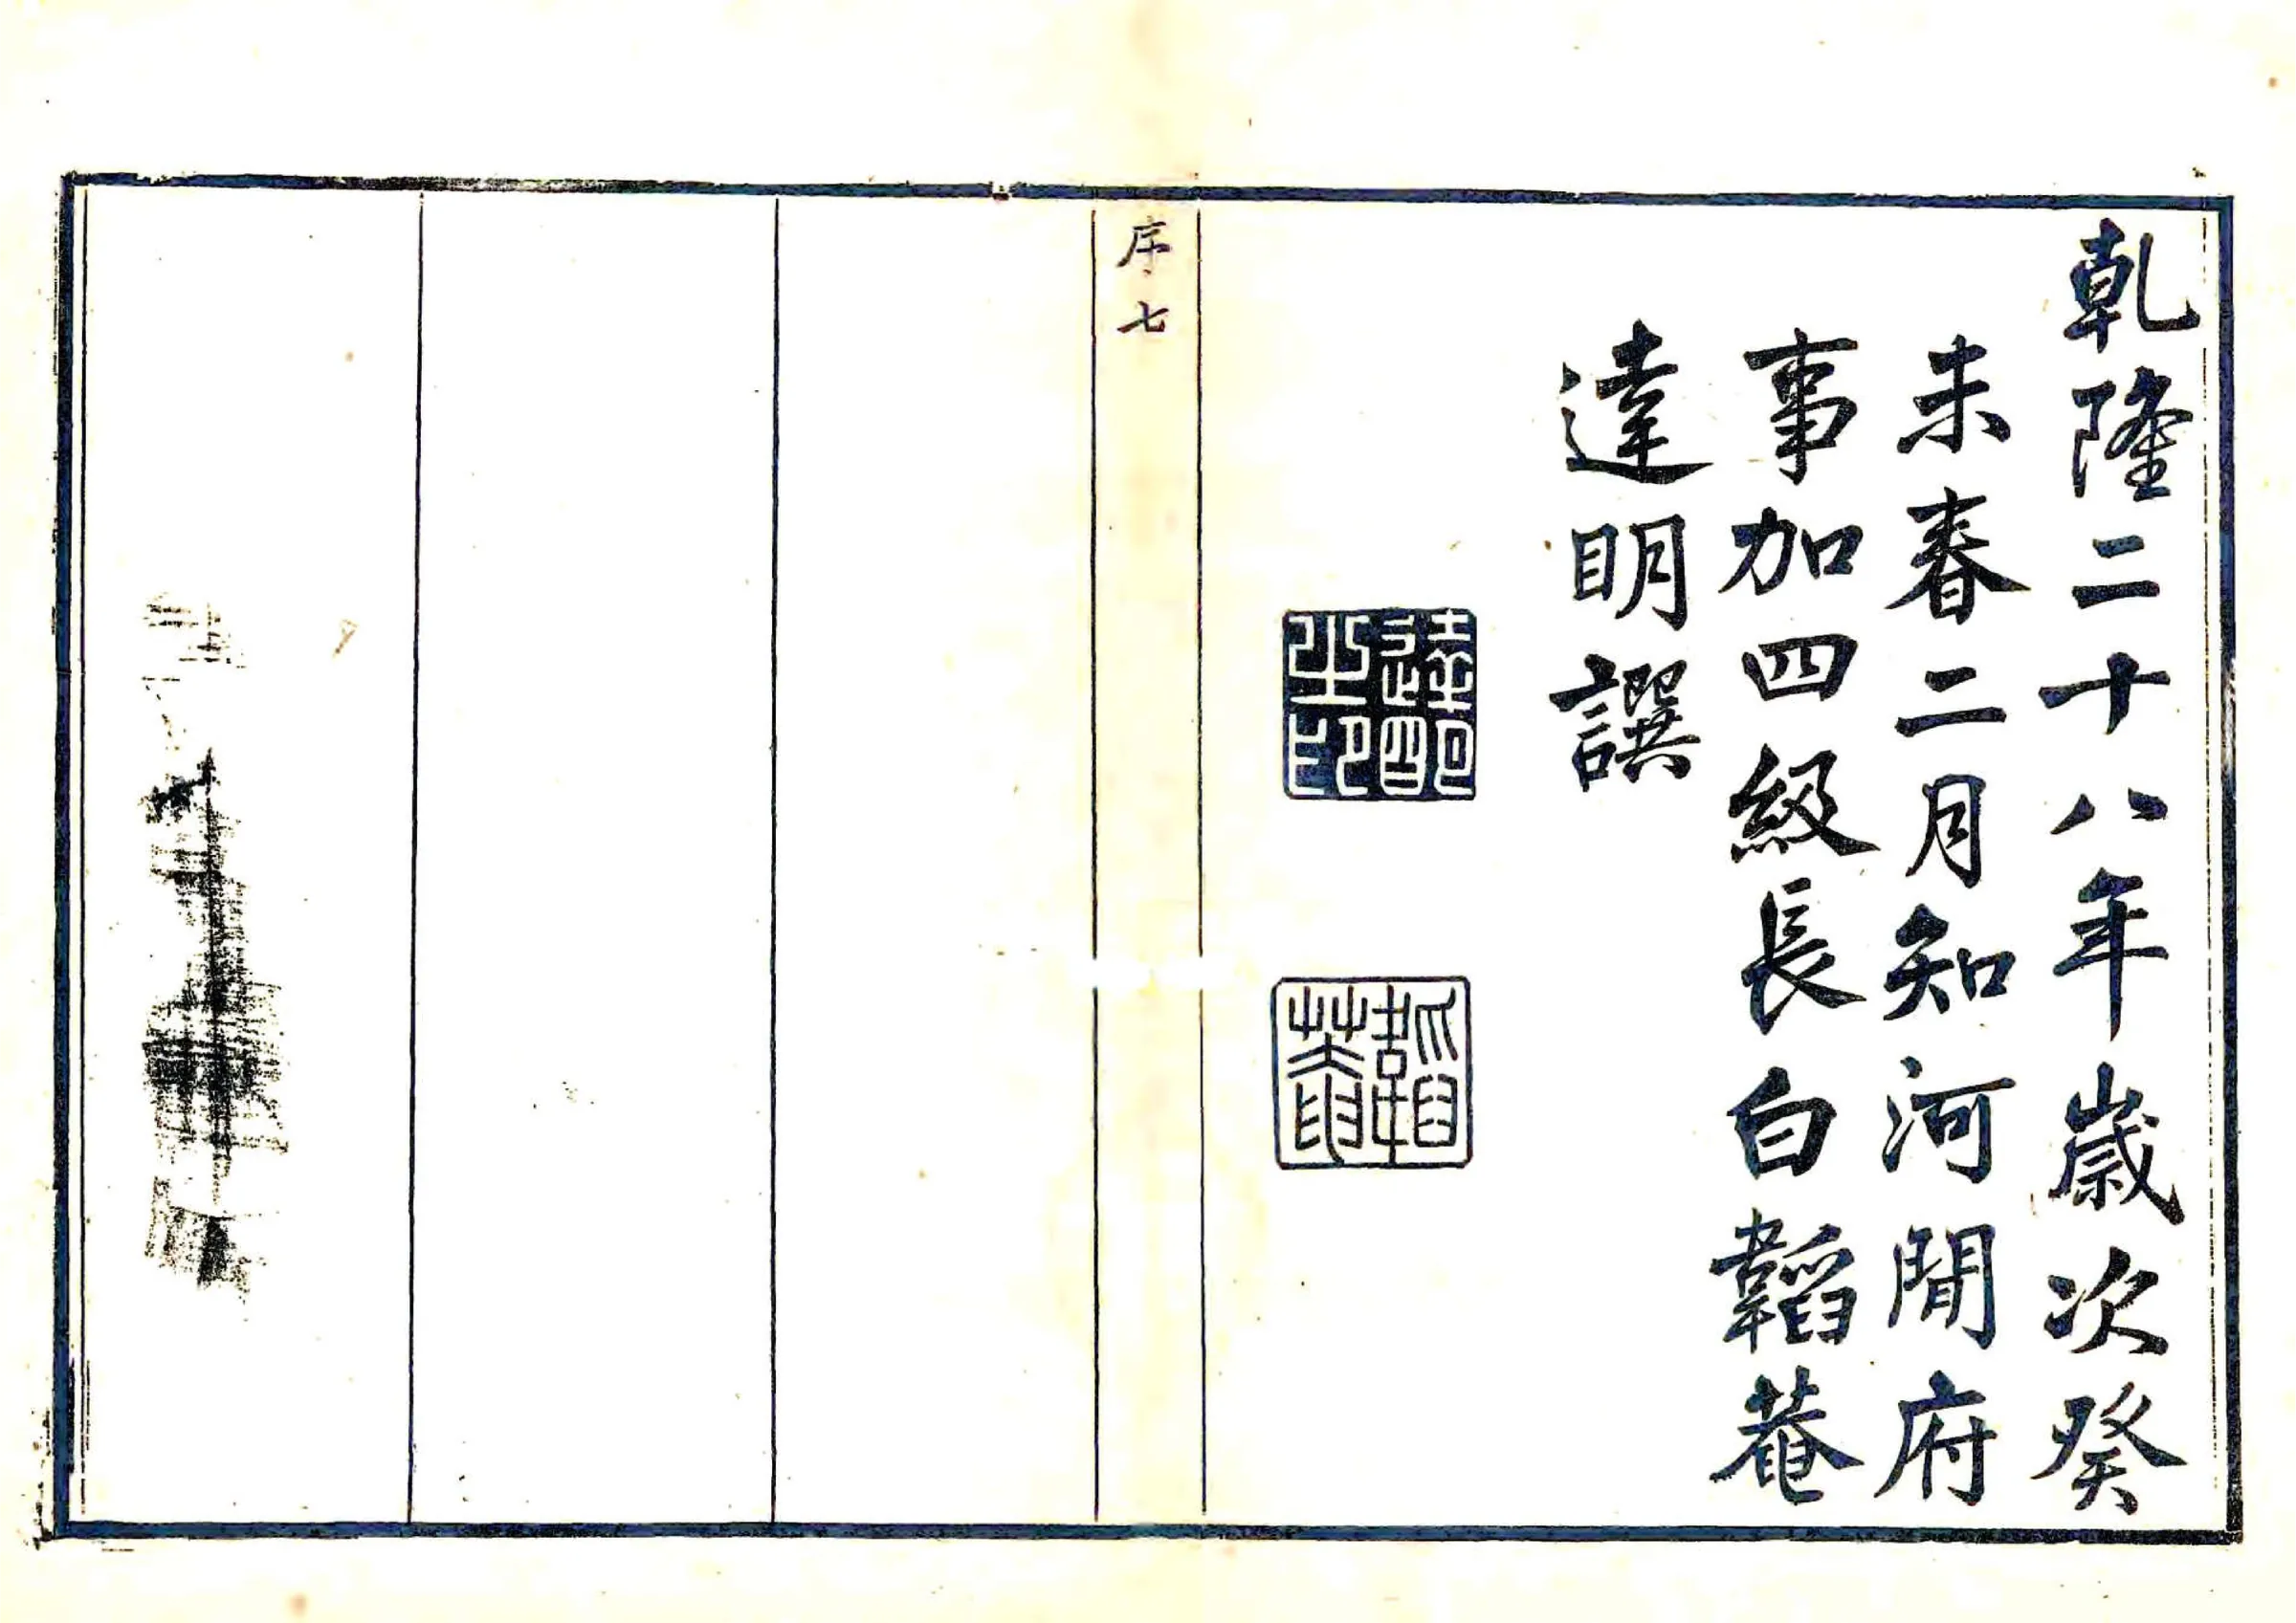 乾隆二十八年歲次癸
未春二月知河間府
事加四級長白韜菴
達明譔
達明之印
韜菴
序
七